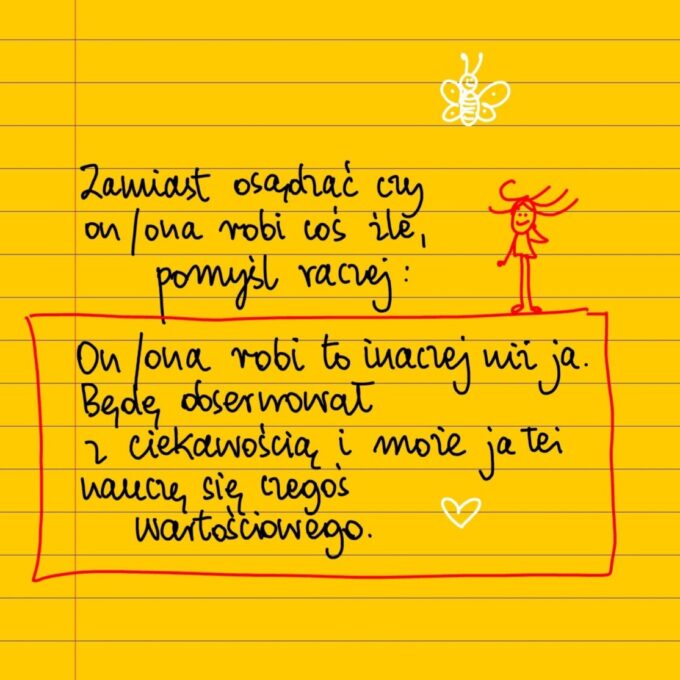 Zamiast osądzać czy
on/ona robi coś źle,
pomyśl raczej:
On/ona robi to inaczej niż ja.
Będę obserwował
z ciekawością i może ja też
nauczę się czegoś
wartościowego.